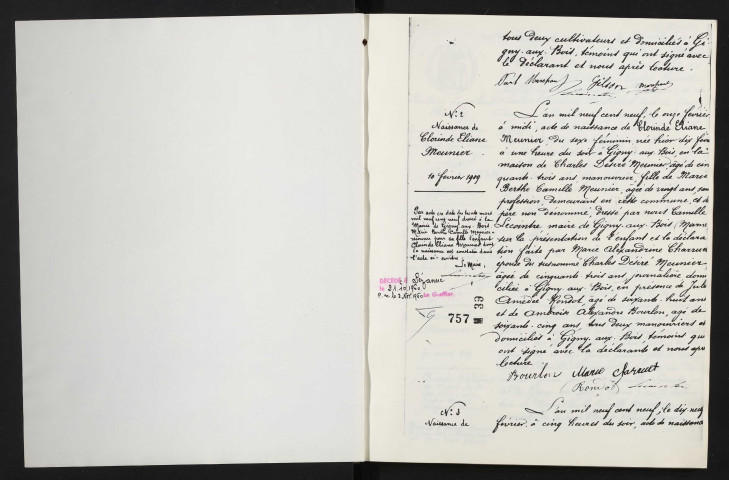 tous deux cultivateurs et domiciliés à Gi-
gny-aux-Bois, témoins qui ont signé avec
le déclarant et nous après lecture.
Gilson
N: 2
Naissance de
Clorinde Eliane
Meunier
10 février 1909
L'an mil neuf cent neuf, le onze février
à midi, acte de naissance de Clorinde Eliane
Meunier, du sexe féminin née hier dix février
à une heure du soir à Gigny-aux-Bois, en la
maison de Charles Désiré Meunier, âgé de cin
quante-trois ans manouvrier, fille de Marie
Berthe Camille Meunier, âgée de vingt ans, sans
profession, demeurant en cette commune, et de
père non dénommé, dressé par nous Camille
Lecointre, maire de Gigny-aux-Bois, Marne
sur la présentation de l'enfant et la déclara
tion faite par Marie Alexandrine
épouse du susnommé Charles Désiré Meunier
âgée de cinquante trois ans, journalière domi
ciliée à Gigny-aux-Bois, en présence de Jules
Amédée Rondot, âgé de soixante-trois ans
et de Ambroise Alexandre Bourlon, âgé de
soixante-cinq ans, tous deux manouvriers et
domiciliés à Gigny-aux-Bois, témoins qui
ont signé avec la déclarante et nous après
lecture.
Bourlon Marie
Par acte en date du trente mars
mil neuf cent neuf dressé à la
Mairie de Gigny-aux-Bois
Marie Berthe Camille Meunier a
reconnu pour sa fille l'enfant
Clorinde Eliane Meunier dont
la naissance est constatée dans
l'acte ci-contre
Le Maire,
DÉCÉDÉE à Sézanne
le
Le Greffier
757
39
N: 3
Naissance de
L'an mil neuf cent neuf, le dix-neuf
février, à cinq heures du soir, acte de naissance